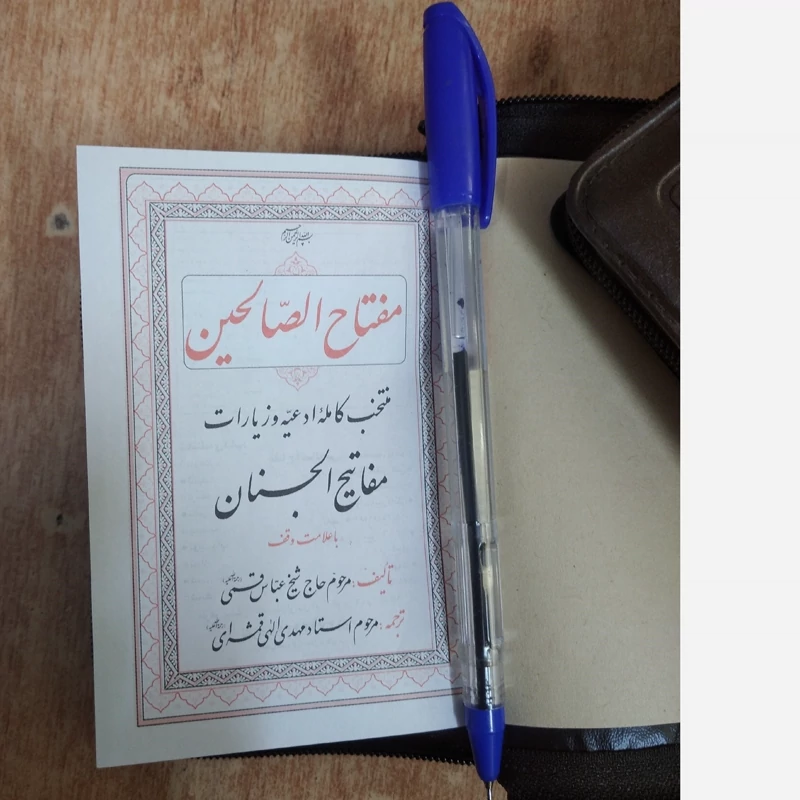 بسم الله الرحمن الرحیم
مفتاح الصّالحین
منتخب کاملهٔ ادعیّه و زیارات
مفاتیح الجنان
با علامت وقف
تألیف: مرحوم حاج شیخ عبّاس قمی
ترجمه: مرحوم استاد مهدی الهی قمشه‌ای